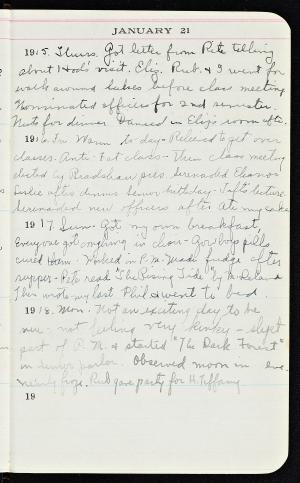 JANUARY 21
1915. Thurs. Got letter from Pete telling
about visit. Eliz. Rub. & I went for
walk around lakes before class meeting
Nominated officers for 2nd semester.
Nuts for dinner. Danced in Eliz's room after.
1916. Fri. Warm to-day - Relieved to get over
classes. Anti-Fat class - Then class meeting
elected by pres. serenaded Eleanor
Leslie after dinner Senior birthday -
Serenaded new officers after. Ate my cake
1917 Sun - Got my own breakfast,
Everyone got in choir -
cured - Worked in P.M. Made fudge after
supper - Pete read "The Rising Tide" by M. Deland
Then wrote my last Phil & went to bed.
1918. Mon. Not an exciting day to be
sure - not feeling very - slept
part of P.M. & started "The Dark Forest"
in Senior parlor. Observed moon in eve.
nearly froze. Rub gave party for H. Tiffany
19